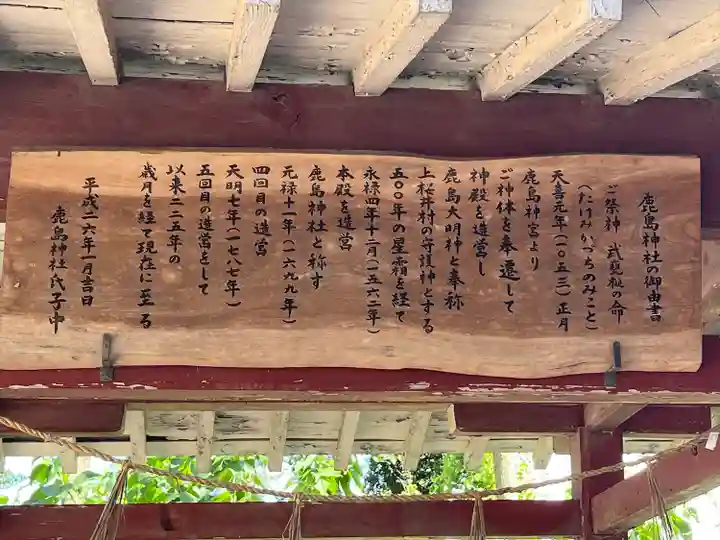 鹿島神社の御由書
ご祭神 武甕槌の命
(たけみかづちのみこと)
天喜元年(一〇五三)正月
鹿島神宮より
ご神体を奉遷して
神殿を造営し
鹿島大明神と奉称
上桜井村の守護神とする
五〇〇年の星霜を経て
永禄四年十二月(一五六二年)
本殿を造営
鹿島神社と称す
元禄十一年(一六九九年)
四回目の造営
天明七年(一七八七年)
五回目の造営をして
以来二二五年の
歳月を経て現在に至る
平成二六年一月吉日
鹿島神社氏子中